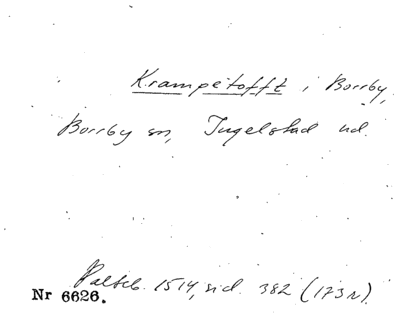 Krampetofft i Borrby,
Borrby sn, Ingelstad hd.
Palteb. 1514, sid. 382 (173 v).
Nr 6626.